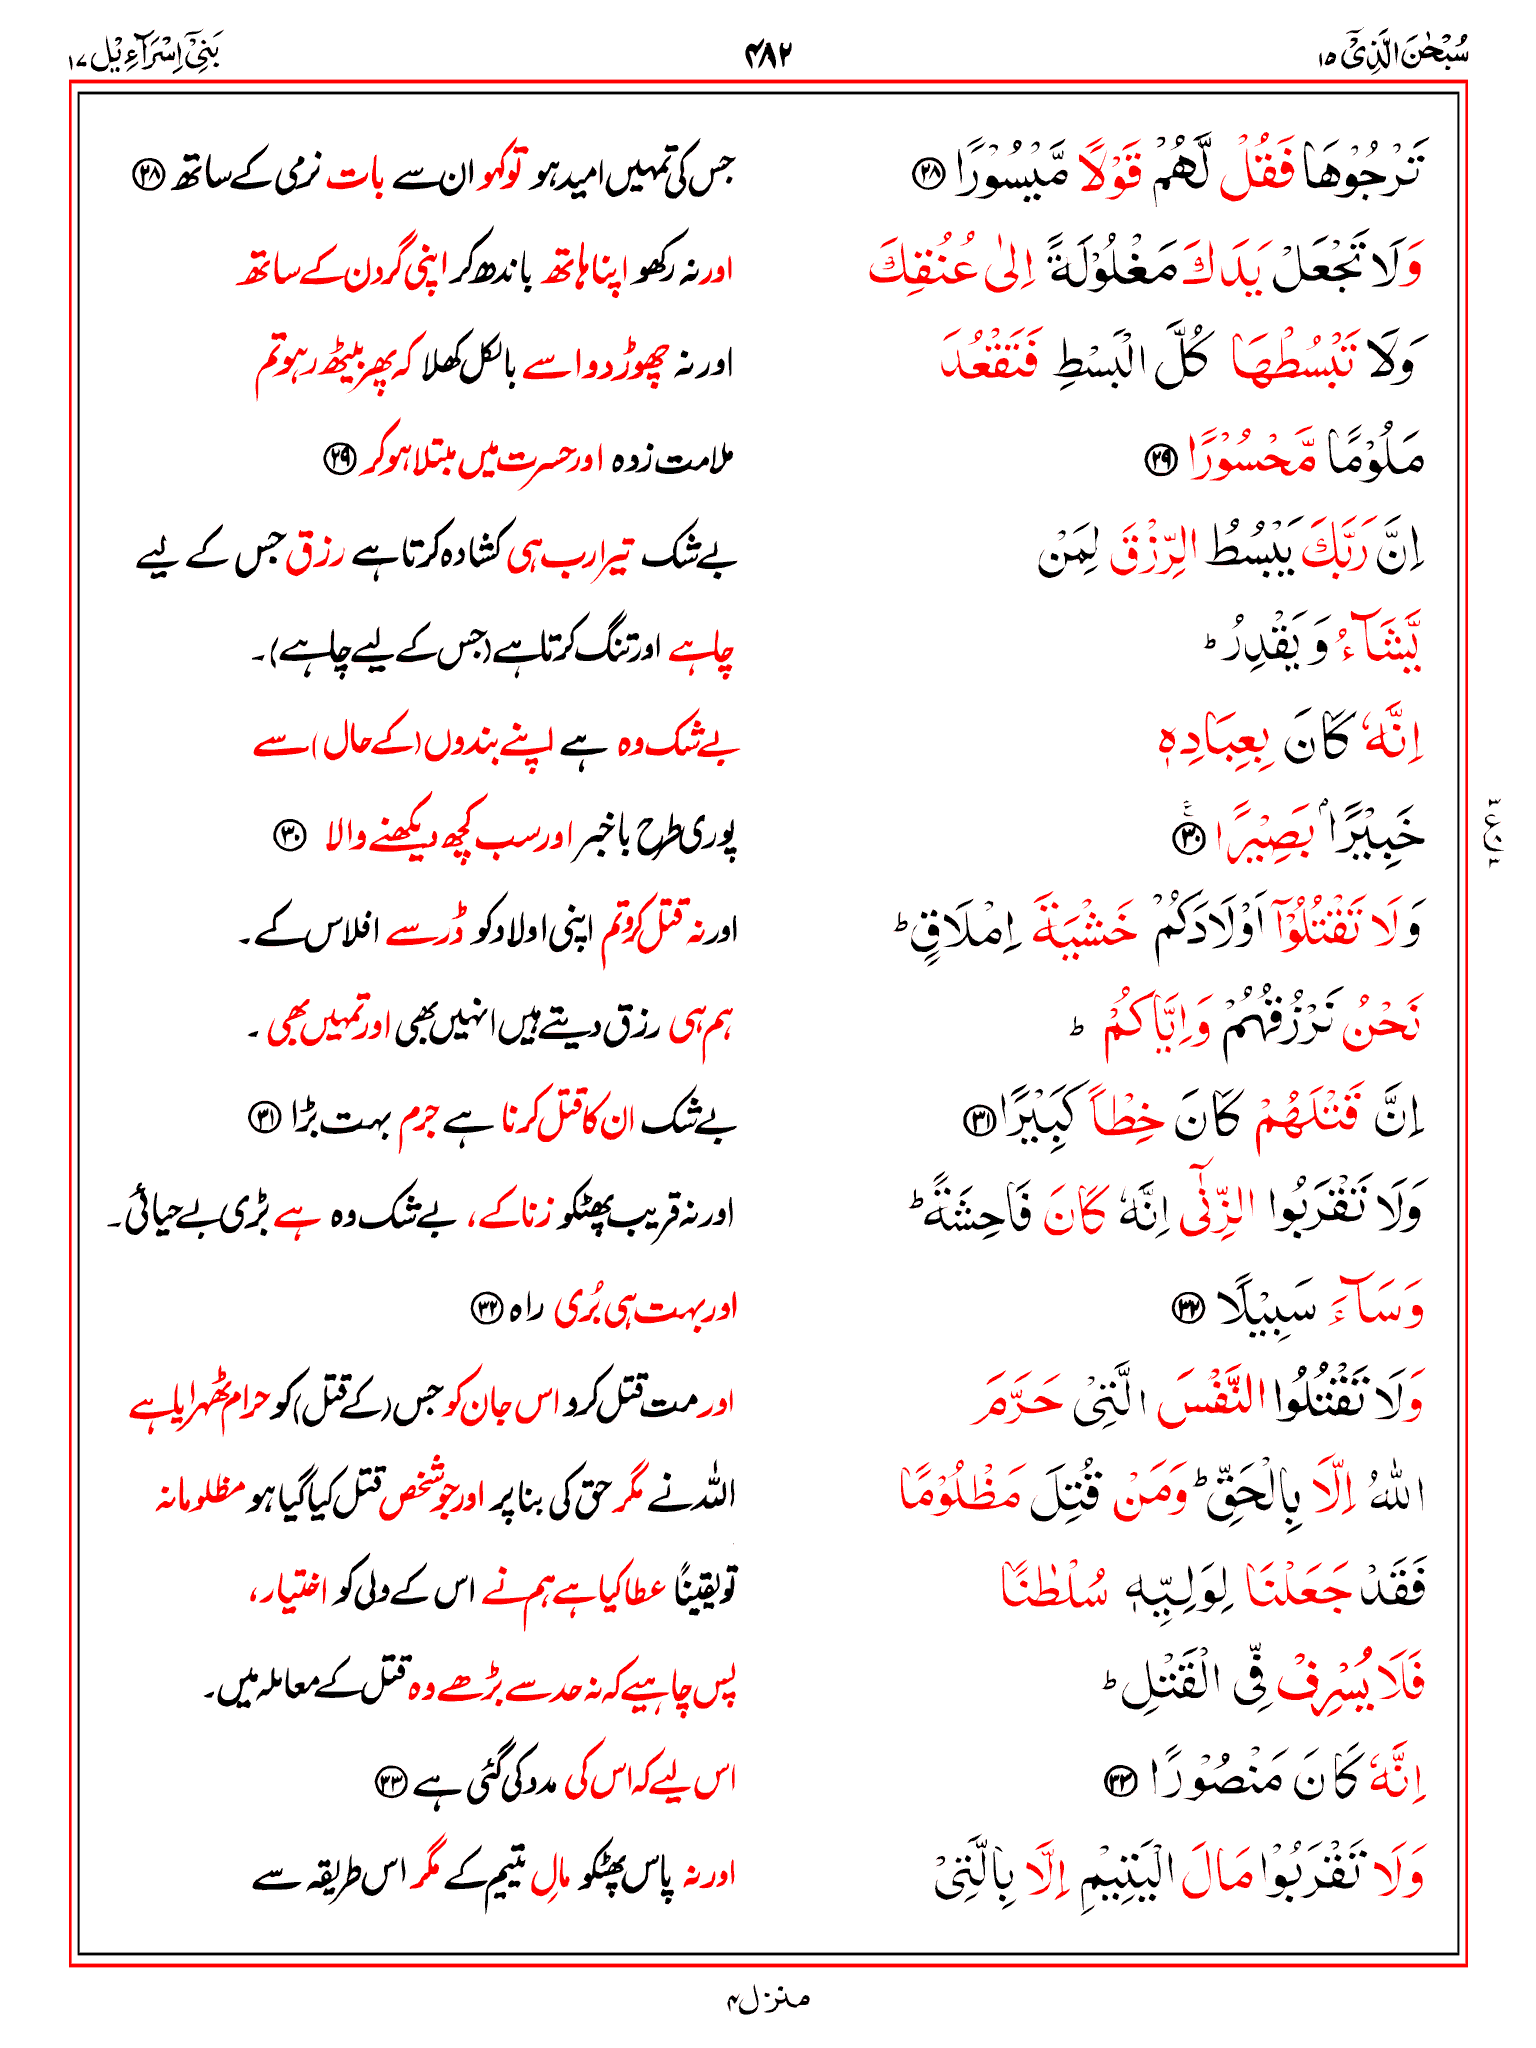 سُبْحٰنَ الَّذِیْۤ ۱۵ ۴۸۲ بَنِیْۤ اِسْرَآءِیْل ۱۷
تَرْجُوْهَا فَقُلْ لَّهُمْ قَوْلًا مَّیْسُوْرًا ﴿۲۸﴾ جس کی تمہیں امید ہو تو کہو ان سے بات نرمی کے ساتھ ﴿۲۸﴾
وَلَا تَجْعَلْ یَدَكَ مَغْلُوْلَةً اِلٰی عُنُقِكَ اور نہ رکھو اپنا ہاتھ باندھ کر اپنی گردن کے ساتھ
وَلَا تَبْسُطْهَا كُلَّ الْبَسْطِ فَتَقْعُدَ اور نہ چھوڑ دو اسے بالکل کھلا کہ پھر بیٹھ رہو تم
مَلُوْمًا مَّحْسُوْرًا ﴿۲۹﴾ ملامت زدہ اور حسرت میں مبتلا ہو کر ﴿۲۹﴾
اِنَّ رَبَّكَ یَبْسُطُ الرِّزْقَ لِمَنْ بے شک تیرا رب ہی کشادہ کرتا ہے رزق جس کے لیے
یَّشَآءُ وَ یَقْدِرُ ؕ چاہے اور تنگ کرتا ہے (جس کے لیے چاہے)۔
اِنَّهٗ كَانَ بِعِبَادِهٖ بے شک وہ ہے اپنے بندوں (کے حال) سے
خَبِیْرًاۢ بَصِیْرًا ﴿۳۰﴾ پوری طرح باخبر اور سب کچھ دیکھنے والا ﴿۳۰﴾
ع
وَلَا تَقْتُلُوْۤا اَوْلَادَكُمْ خَشْیَةَ اِمْلَاقٍ ؕ اور نہ قتل کرو تم اپنی اولاد کو ڈر سے افلاس کے۔
نَحْنُ نَرْزُقُهُمْ وَاِیَّاكُمْ ؕ ہم ہی رزق دیتے ہیں انہیں بھی اور تمہیں بھی ۔
اِنَّ قَتْلَهُمْ كَانَ خِطْاً كَبِیْرًا ﴿۳۱﴾ بے شک ان کا قتل کرنا ہے جرم بہت بڑا ﴿۳۱﴾
وَلَا تَقْرَبُوا الزِّنٰۤی اِنَّهٗ كَانَ فَاحِشَةً ؕ اور نہ قریب پھٹکو زنا کے، بے شک وہ ہے بڑی بے حیائی۔
وَسَآءَ سَبِیْلًا ﴿۳۲﴾ اور بہت ہی بُری راہ ﴿۳۲﴾
وَلَا تَقْتُلُوا النَّفْسَ الَّتِیْ حَرَّمَ اور مت قتل کرو اس جان کو جس (کے قتل) کو حرام ٹھہرایا ہے
اللّٰهُ اِلَّا بِالْحَقِّ ؕ وَمَنْ قُتِلَ مَظْلُوْمًا اللہ نے مگر حق کی بنا پر اور جو شخص قتل کیا گیا ہو مظلومانہ
فَقَدْ جَعَلْنَا لِوَلِیِّهٖ سُلْطٰنًا تو یقیناً عطا کیا ہے ہم نے اس کے ولی کو اختیار،
فَلَا یُسْرِفْ فِّی الْقَتْلِ ؕ پس چاہیے کہ نہ حد سے بڑھے وہ قتل کے معاملہ میں۔
اِنَّهٗ كَانَ مَنْصُوْرًا ﴿۳۳﴾ اس لیے کہ اس کی مدد کی گئی ہے ﴿۳۳﴾
وَلَا تَقْرَبُوْا مَالَ الْیَتِیْمِ اِلَّا بِالَّتِیْ اور نہ پاس پھٹکو مالِ یتیم کے مگر اس طریقہ سے
منزل ۴